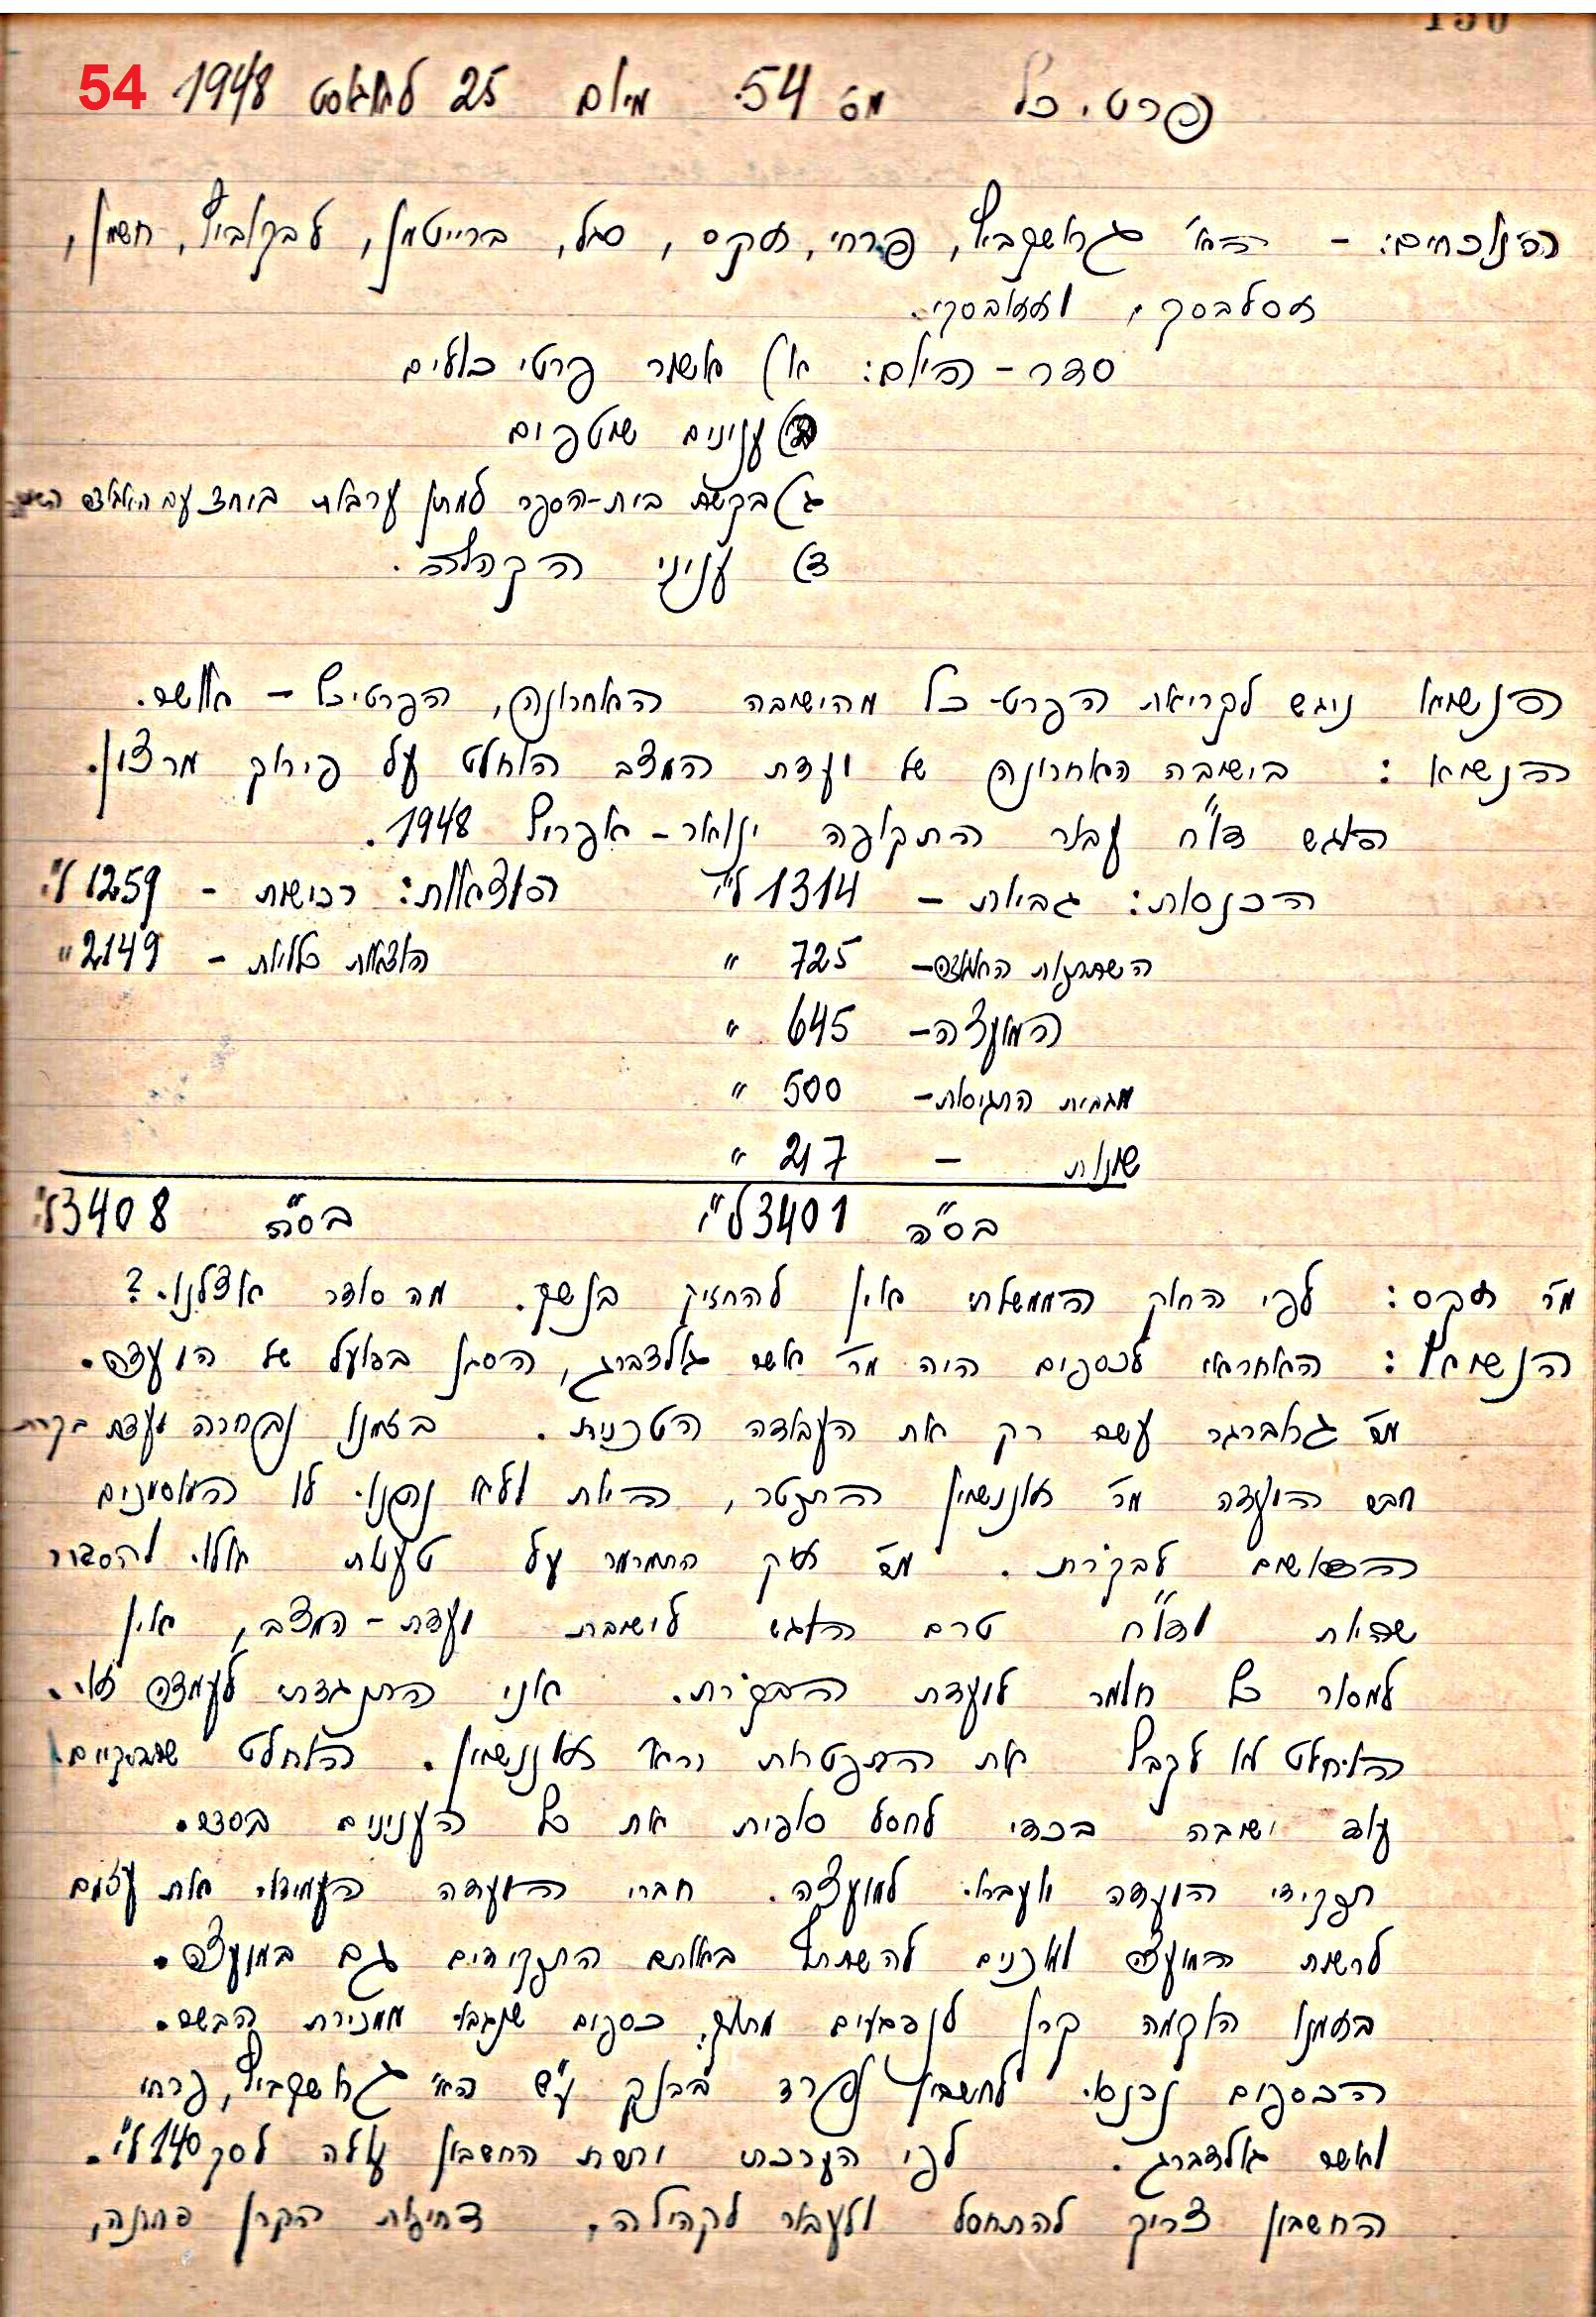 150
54
פרטי-כל מס' 54. מיום 25 לאוגוסט 1948
הנוכחים: - ה"ה גראשקביץ, פרחי, זקס, סגל, ברייטמן, לבקוביץ, חשמן,
וזאבסקי.
סדר-היום: א) אשור פרטי כולים
ב) ענינים שוטפים
ג) בקשת בית-הספר למתן ערבות ביחד עם האגודה
ד) עניני הקהלה.
הנשיא ניגש לקריאת הפרטי-כל מהישיבה האחרונה, הפרטיכל - אושר.
הנשיא: בישיבה האחרונה של ועדת המצב הוחלט על פירוק מרצון.
הוגש דו"ח עבור התקופה ינואר-אפריל 1948.
הכנסות: גביות - 1314 ל"י הוצאות: רכישות - 1259 ל"י
השתתפות האגודה- 725 " הוצאות כלליות - 2149 "
המועצה- 645 "
מגבית התגיסות- 500 "
שונות - 217 "
בס"ה 3401 ל"י בס"ה 3408 ל"י
מר זקס: לפי החוק הממשלתי אין להחזיק בנשק. מה סודר אצלנו?
הנשיא: האחראי לכספים היה מר אשר גולדברג, הסגן בפועל של הועדה.
מר גראברגר עשה רק את העבודה הטכנית. בזמנו נבחרה ועדת בקרת
חבר הועדה מר זוננשיין התפטר, היות ולא נתנו לו המסמכים
הדרושים לבקורת. מר זק התמרמר על טענות אלו להסביר
שהיות ודו"ח טרם הוגש לישיבת ועדת-המצב, אין
למסור כל חומר לועדת הבקורת. אני התנגדתי לעמדה זו.
הוחלט לא לקבל את התפטרות מר זוננשיין. הוחלט שתתקיים
עוד ישיבה בכדי לחסל סופית את כל הענינים בסדר.
תפקידי הועדה יועברו למועצה. חברי הועדה העמידו את עצמם
לרשות המועצה ומוכנים להשתתף באותם התפקידים גם במועצה.
בזמנו הוקמה קרן לנפגעים מתוך כספים שנגבו ממכירת הבשר.
הכספים נכנסו לחשבון נפרד בבנק ע"ש ה"ה גראשקביץ, פרחי
ואשר גולדברג. לפי הערכתי יתרת החשבון עולה לסך 140 ל"י.
החשבון צריך להתחסל ולעבור לקהילה. דחיפות הקרן פחותה,